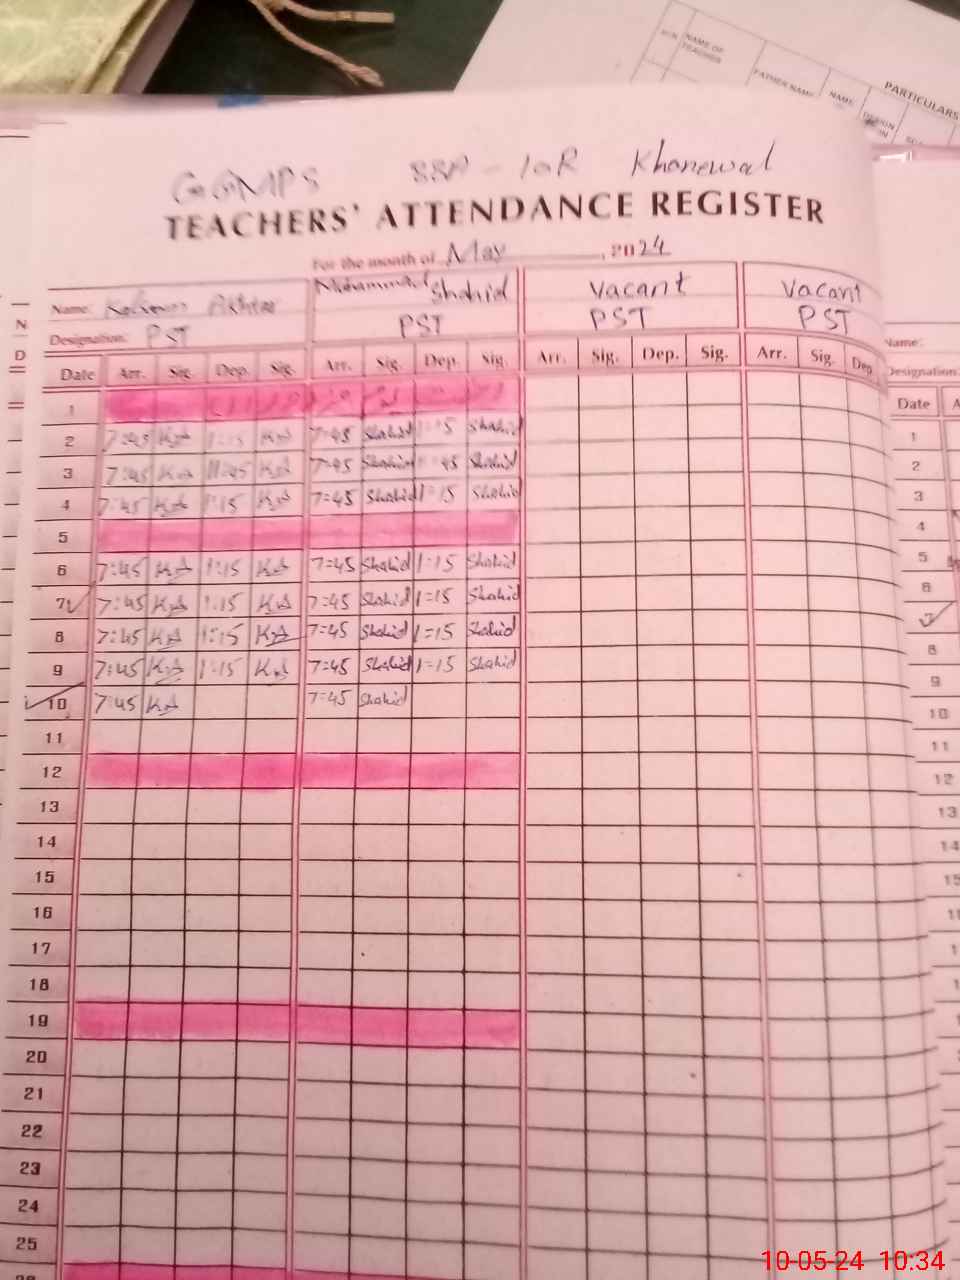 M/N NAME OF TEACHER FATHER NAME NAME PARTICULARS
GGMPS 88A - 10R Khanewal
TEACHERS' ATTENDANCE REGISTER
For the month of May, 2024
Name: Akhtar Muhammad Shahid Vacant Vacant
Designation: PST PST PST PST
Date Arr. Sig. Dep. Sig. Arr. Sig. Dep. Sig. Arr. Sig. Dep. Sig. Arr. Sig. Dep.
1
2 7:45 KA 1:15 KA 7=45 Shahid 1=15 Shahid
3 7:45 KA 11:45 KA 7=45 Shahid 45 Shahid
4 7:45 KA 1:15 KA 7=45 Shahid 1=15 Shahid
5
6 7:45 KA 1:15 KA 7=45 Shahid 1=15 Shahid
7 7:45 KA 1:15 KA 7=45 Shahid 1=15 Shahid
8 7:45 KA 1:15 KA 7=45 Shahid 1=15 Shahid
9 7:45 KA 1:15 KA 7=45 Shahid 1=15 Shahid
10 7:45 KA 7=45 Shahid
11
12
13
14
15
16
17
18
19
20
21
22
23
24
25
Name:
Designation:
Date A
1
2
3
4
5
6
7
8
9
10
11
12
13
14
15
N
D
10-05-24 10:34